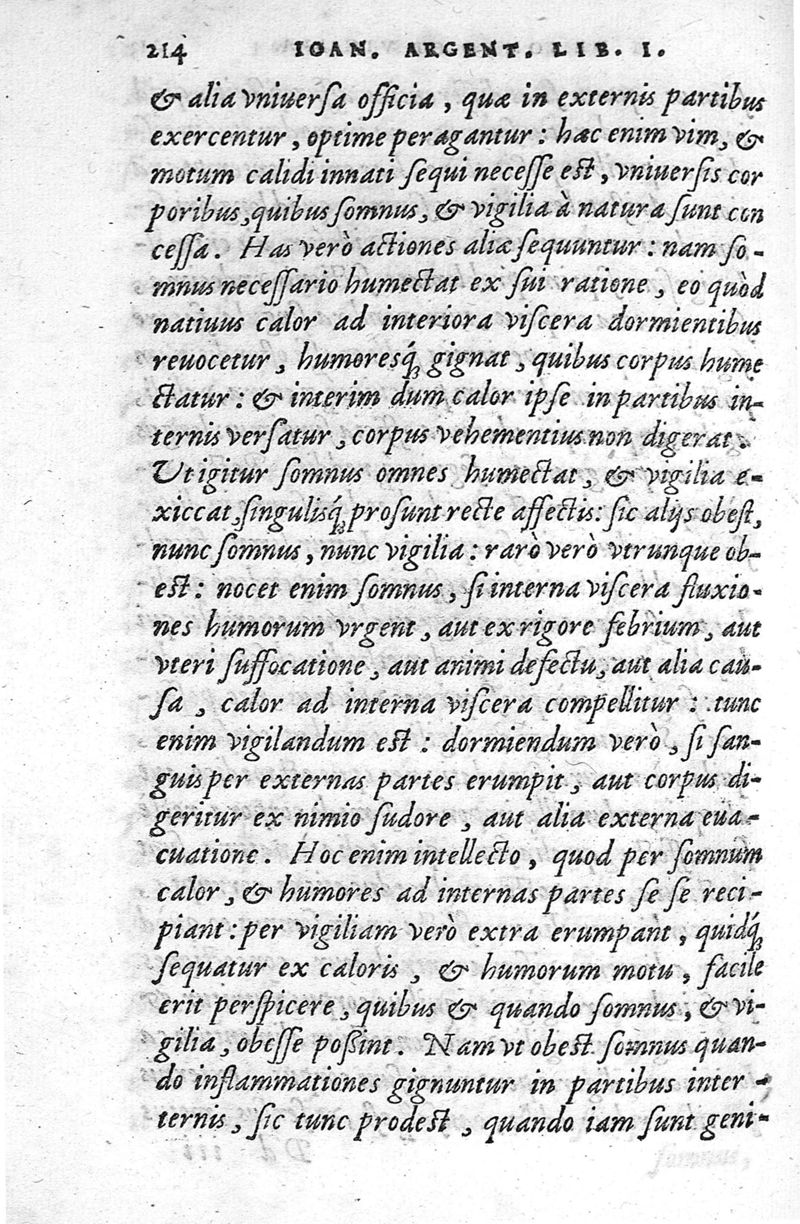 214 IOAN. ARGENT. LIB. I.
& alia vniuerſa officia, quæ in externis partibus
exercentur, optime peragantur: hæc enim vim, &
motum calidi innati ſequi neceſſe est, vniuerſis cor
poribus, quibus ſomnus, & vigilia à natura ſunt con
ceſſa. Has verò actiones aliæ ſequuntur: nam ſo-
mnus neceſſario humectat ex ſui ratione, eo quòd
natiuus calor ad interiora viſcera dormientibus
reuocetur, humoresq́; gignat, quibus corpus hume
ctatur: & interim dum calor ipſe in partibus in-
ternis verſatur, corpus vehementius non digerat.
Vt igitur ſomnus omnes humectat, & vigilia e-
xiccat, ſingulisq́; proſunt recte affectis: ſic alijs obeſt,
nunc ſomnus, nunc vigilia: rarò verò vtrunque ob-
est: nocet enim ſomnus, ſi interna viſcera fluxio-
nes humorum vrgent, aut ex rigore febrium, aut
vteri ſuffocatione, aut animi defectu, aut alia cau-
ſa, calor ad interna viſcera compellitur: tunc
enim vigilandum est: dormiendum verò, ſi ſan-
guis per externas partes erumpit, aut corpus di-
geritur ex nimio ſudore, aut alia externa eua-
cuatione. Hoc enim intellecto, quod per ſomnum
calor, & humores ad internas partes ſe ſe reci-
piant: per vigiliam verò extra erumpant, quidq́;
ſequatur ex caloris, & humorum motu, facile
erit perſpicere, quibus & quando ſomnus, & vi-
gilia, obeſſe poßint. Nam vt obest ſomnus quan-
do inflammationes gignuntur in partibus inter-
ternis, ſic tunc prodest, quando iam ſunt geni-